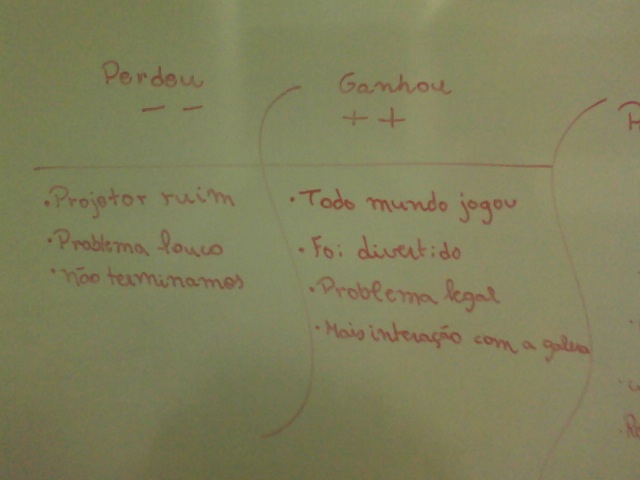 Perdeu
− −
• Projetor ruim
• Problema louco
• não terminamos
Ganhou
+ +
• Todo mundo jogou
• Foi divertido
• Problema legal
• Mais interação com a galera